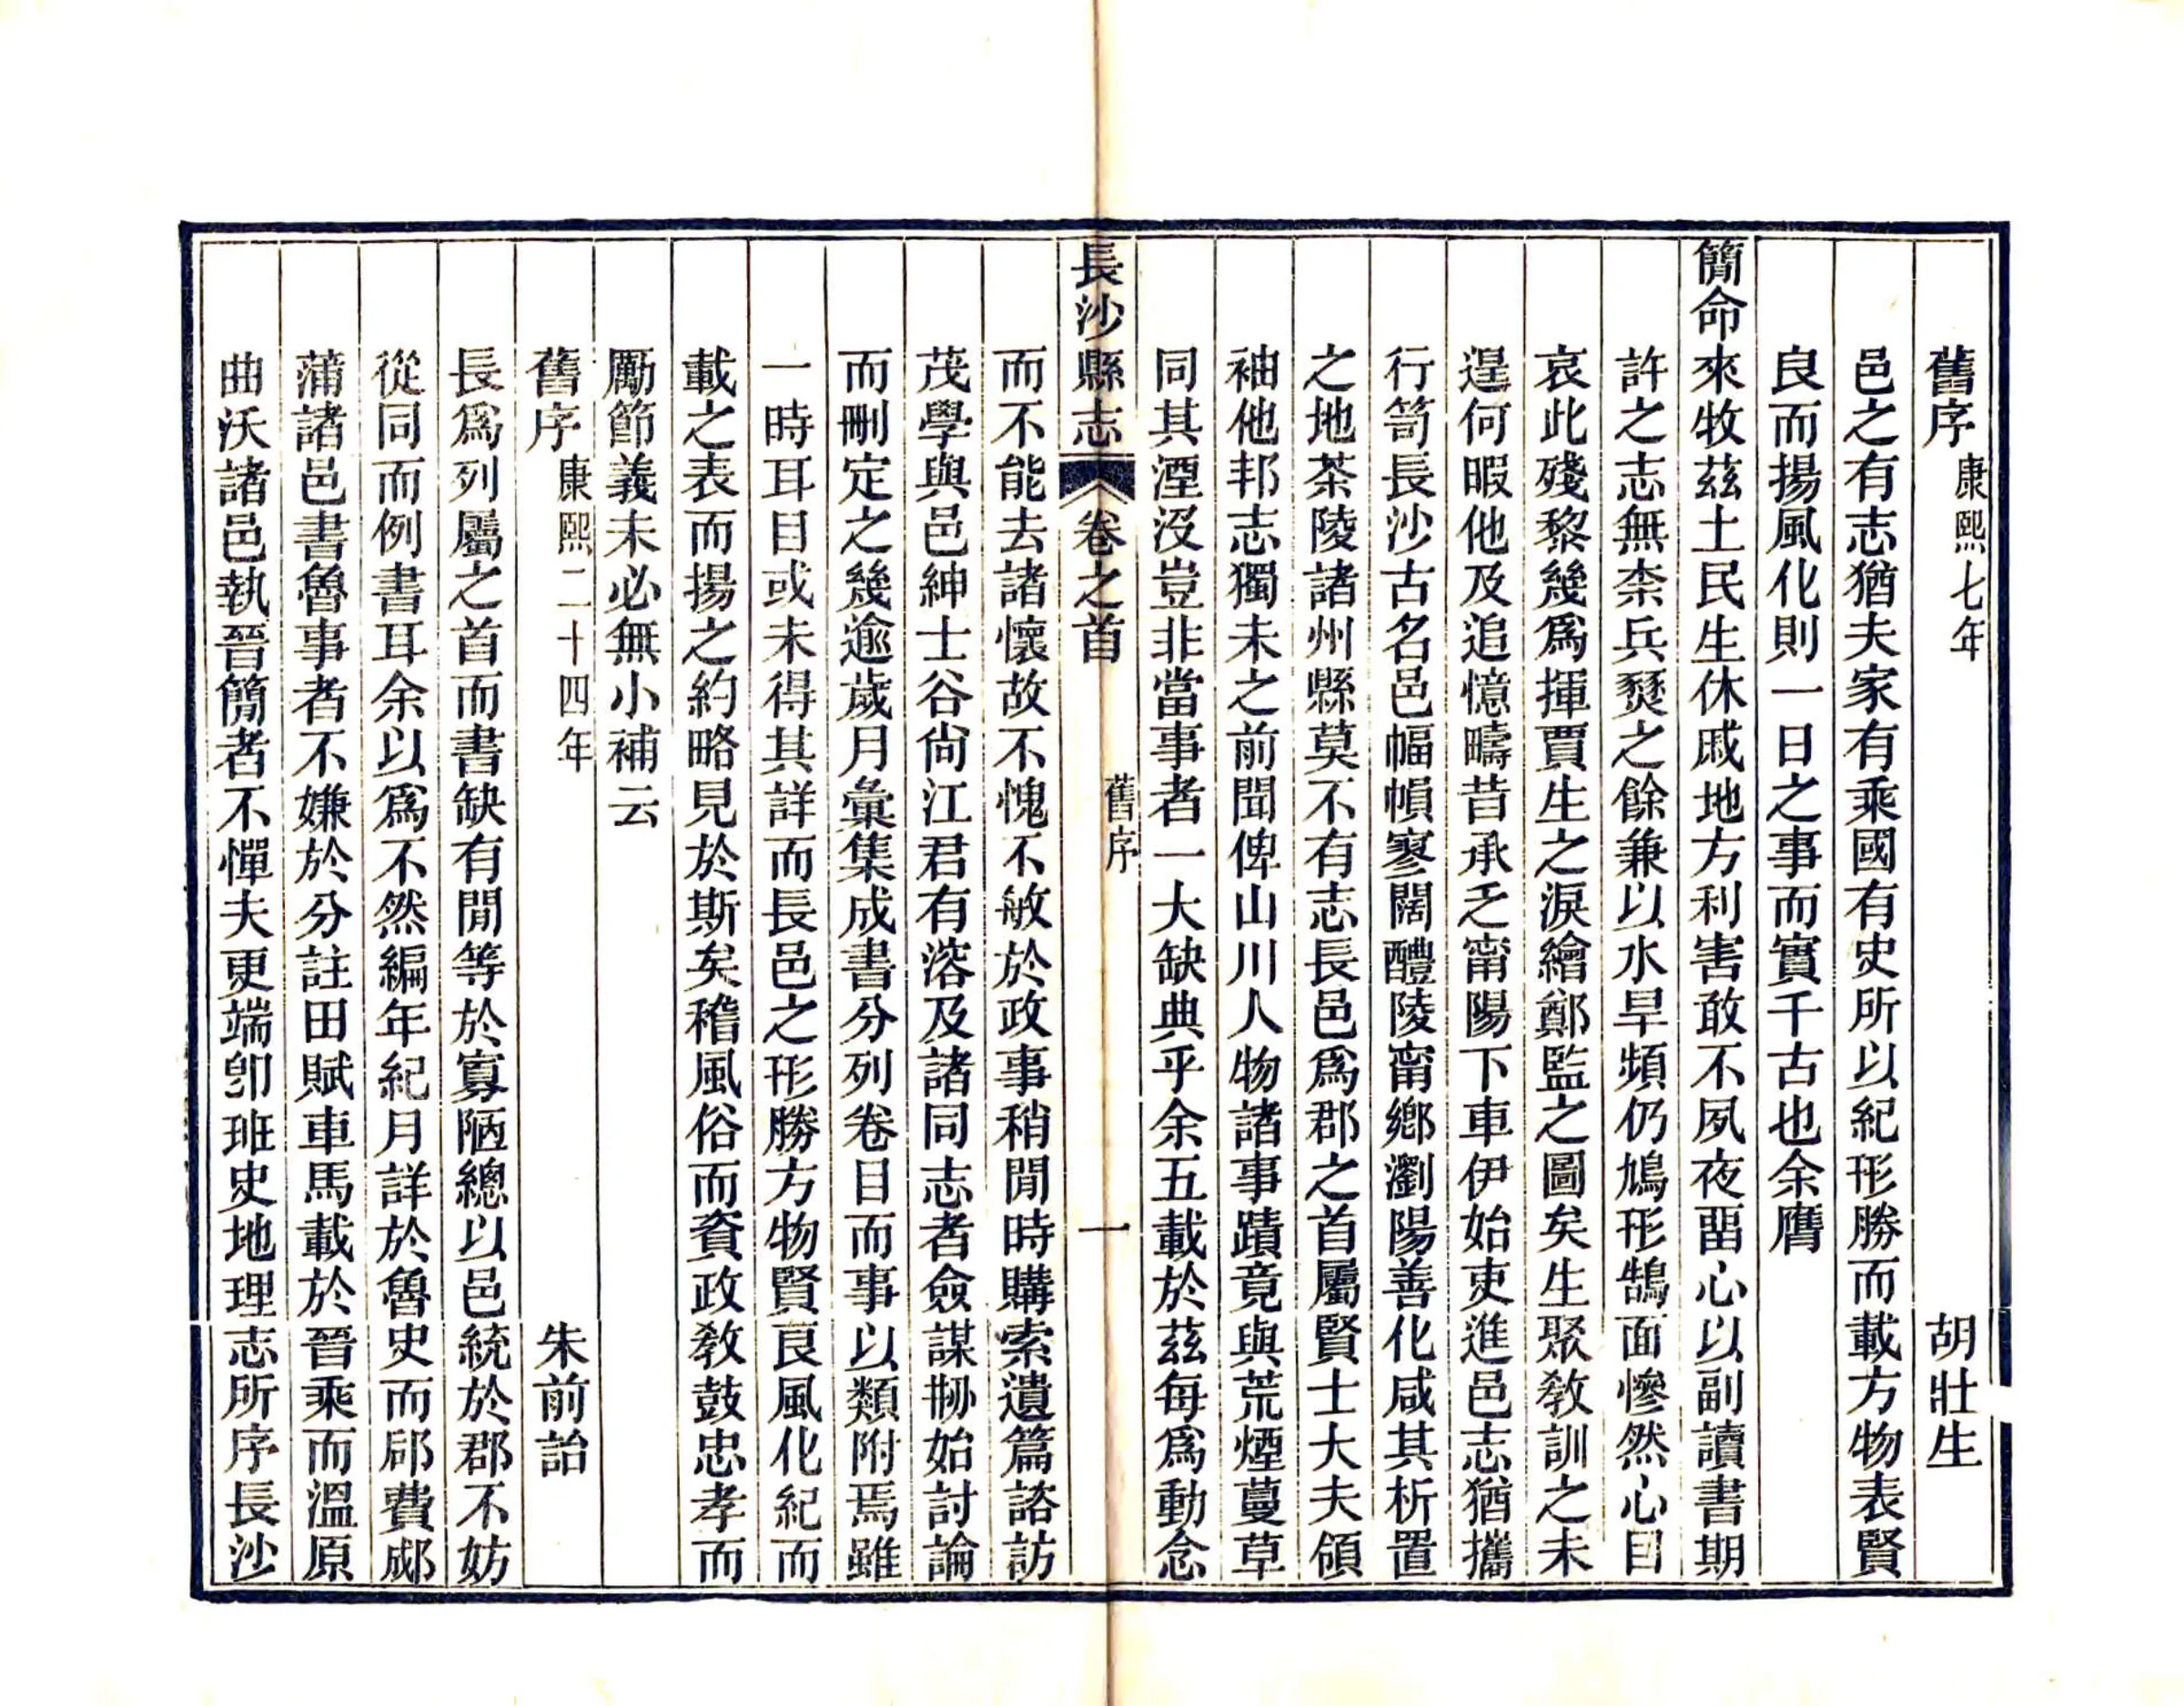 舊序 康熙七年 胡壯生
邑之有志猶夫家有乘國有史所以紀形勝而載方物表賢
良而揚風化則一日之事而實千古也余膺
簡命來牧茲土民生休戚地方利害敢不夙夜畱心以副讀書期
許之志無柰兵燹之餘兼以水旱頻仍鳩形鵠面慘然心目
哀此殘黎幾爲揮賈生之淚繪鄭監之圖矣生聚敎訓之未
遑何暇他及追憶疇昔承乏甯陽下車伊始吏進邑志猶攜
行笥長沙古名邑幅幀寥闊醴陵甯鄉瀏陽善化咸其析置
之地茶陵諸州縣莫不有志長邑爲郡之首屬賢士大夫領
袖他邦志獨未之前聞俾山川人物諸事蹟竟與荒煙蔓草
同其湮沒豈非當事者一大缺典乎余五載於茲每爲動念
長沙縣志 卷之首 舊序 一
而不能去諸懷故不愧不敏於政事稍閒時購索遺篇諮訪
茂學與邑紳士谷尙江君有溶及諸同志者僉謀剙始討論
而刪定之幾逾歲月彙集成書分列卷目而事以類附焉雖
一時耳目或未得其詳而長邑之形勝方物賢良風化紀而
載之表而揚之約略見於斯矣稽風俗而資政敎鼓忠孝而
勵節義未必無小補云
舊序 康熙二十四年 朱前詒
長爲列屬之首而書缺有閒等於寡陋總以邑統於郡不妨
從同而例書耳余以爲不然編年紀月詳於魯史而郈費郕
蒲諸邑書魯事者不嫌於分註田賦車馬載於晉乘而溫原
曲沃諸邑執晉簡者不憚夫更端卽班史地理志所序長沙